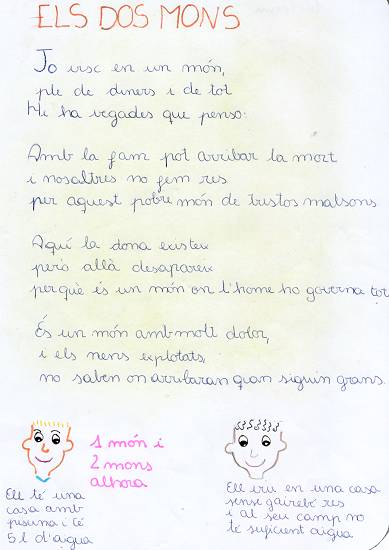 ELS DOS MONS
Jo visc en un món,
ple de diners i de tot
Hi ha vegades que penso:
Amb la fam pot arribar la mort
i nosaltres no fem res
per aquest pobre món de tristos malsons
Aquí la dona existeix
però allà desapareix
perquè és un món on l'home ho governa tot
És un món amb molt dolor,
i els nens explotats,
no saben on arribaran quan siguin grans.
1 món i
2 mons
alhora
Ell té una
casa amb
piscina i té
5 l d'aigua
Ell viu en una casa
sense gairebé res
i al seu camp no
té suficient aigua